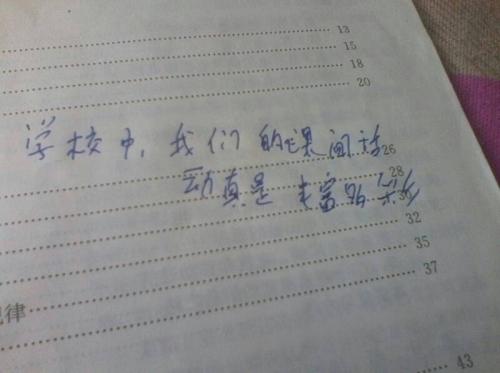 13
15
18
20
学校中,我们的课间活
26
动真是丰富多彩
28
30
32
35
律
37
43